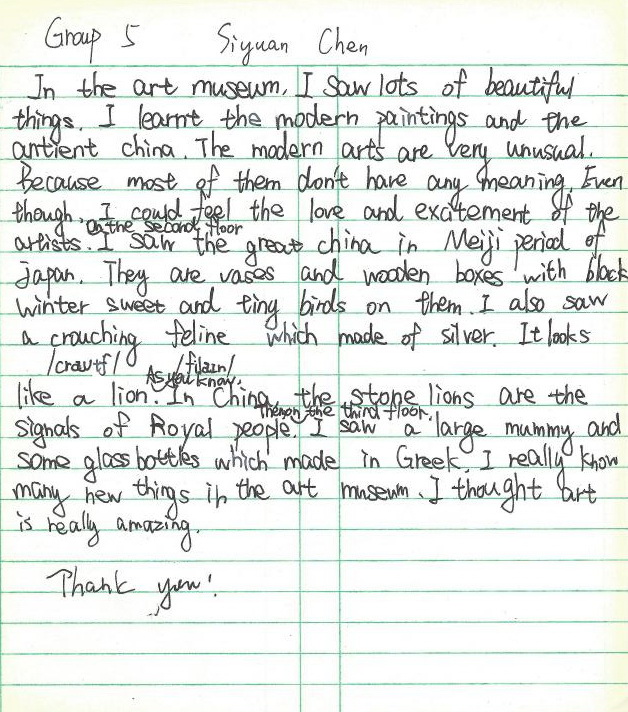 Group 5 Siyuan Chen
In the art museum, I saw lots of beautiful
things. I learnt the modern paintings and the
antient china. The modern arts are very unusual.
Because most of them don't have any meaning. Even
though, I could feel the love and excitement of the
On the second floor
artists. I saw the great china in Meiji period of
japan. They are vases and wooden boxes with black
winter sweet and tiny birds on them. I also saw
a crouching feline which made of silver. It looks
/crawtf/ /filain/
As you know,
like a lion. In China, the stone lions are the
Then on the third floor,
signals of Royal people. I saw a large mummy and
some glass bottles which made in Greek. I really know
many new things in the art museum. I thought art
is really amazing.
Thank you!